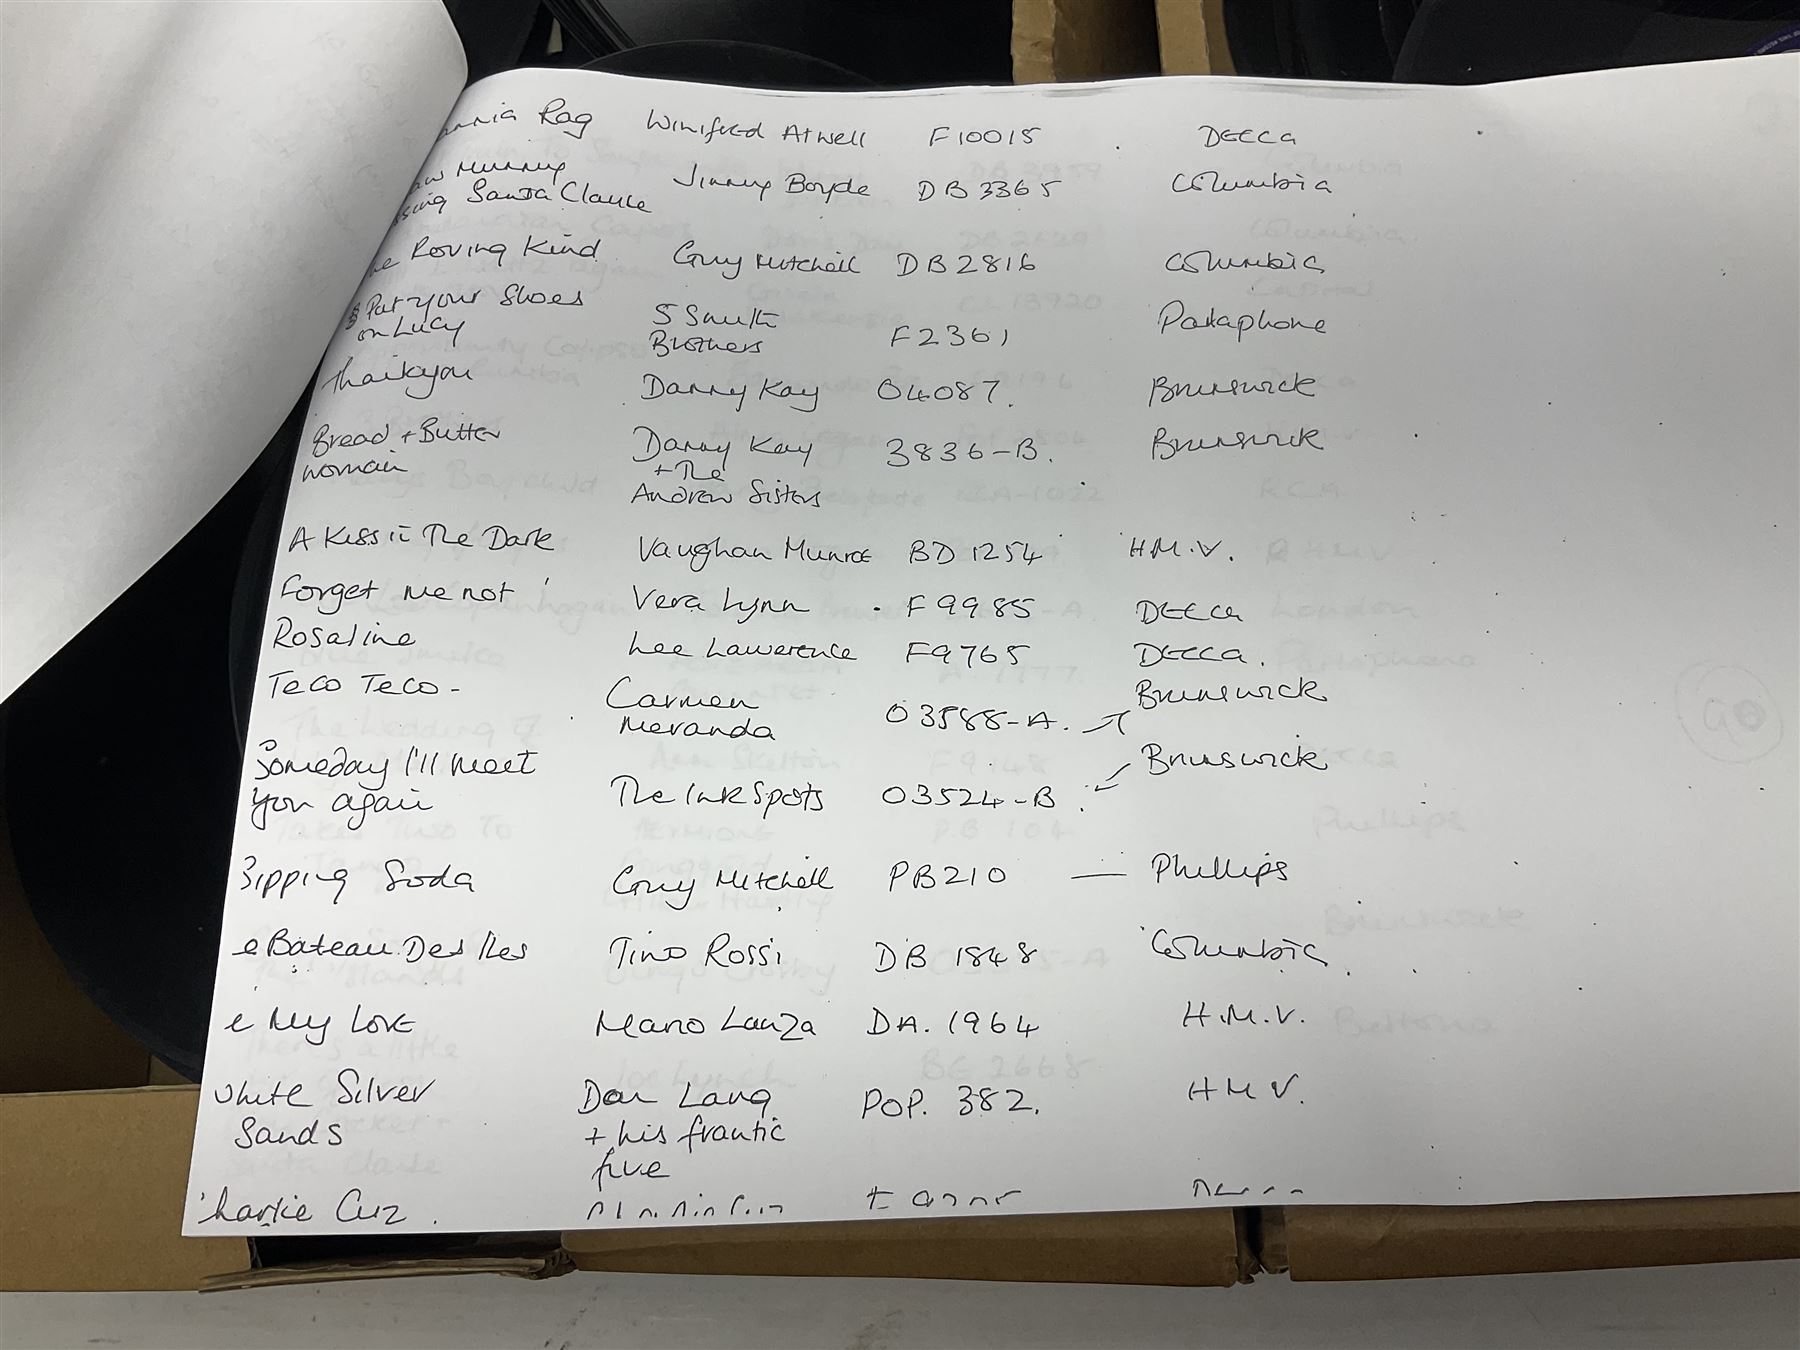 Rag Winifred Atwell F10015 DECCA
Jimmy Boyde DB 3365 Columbia
Santa Clause
Roving Kind Guy Mitchell DB 2816 Columbia
Put your Shoes
on Lucy 5 Smith Brothers F2361 Parlaphone
Thankyou Danny Kay 04087. Brunswick
Bread + Butter
woman Danny Kay + The Andrew Sisters 3836-B. Brunswick
A Kiss in The Dark Vaughan Munroe BD 1254 H.M.V.
Forget me not Vera Lynn F9985 DECCA
Rosaline Lee Lawerence F9765 DECCA.
Teco Teco - Carmen Meranda 03588-A. Brunswick
Someday I'll meet
you again The Ink Spots 03524-B Brunswick
Sipping Soda Guy Mitchell PB210 — Phillips
e Bateau Des Iles Tino Rossi DB 1848 Columbia
e My Love Mario Lanza DA. 1964 H.M.V.
White Silver
Sands Don Lang + his frantic five POP. 382. HMV.
harlie Cuz.